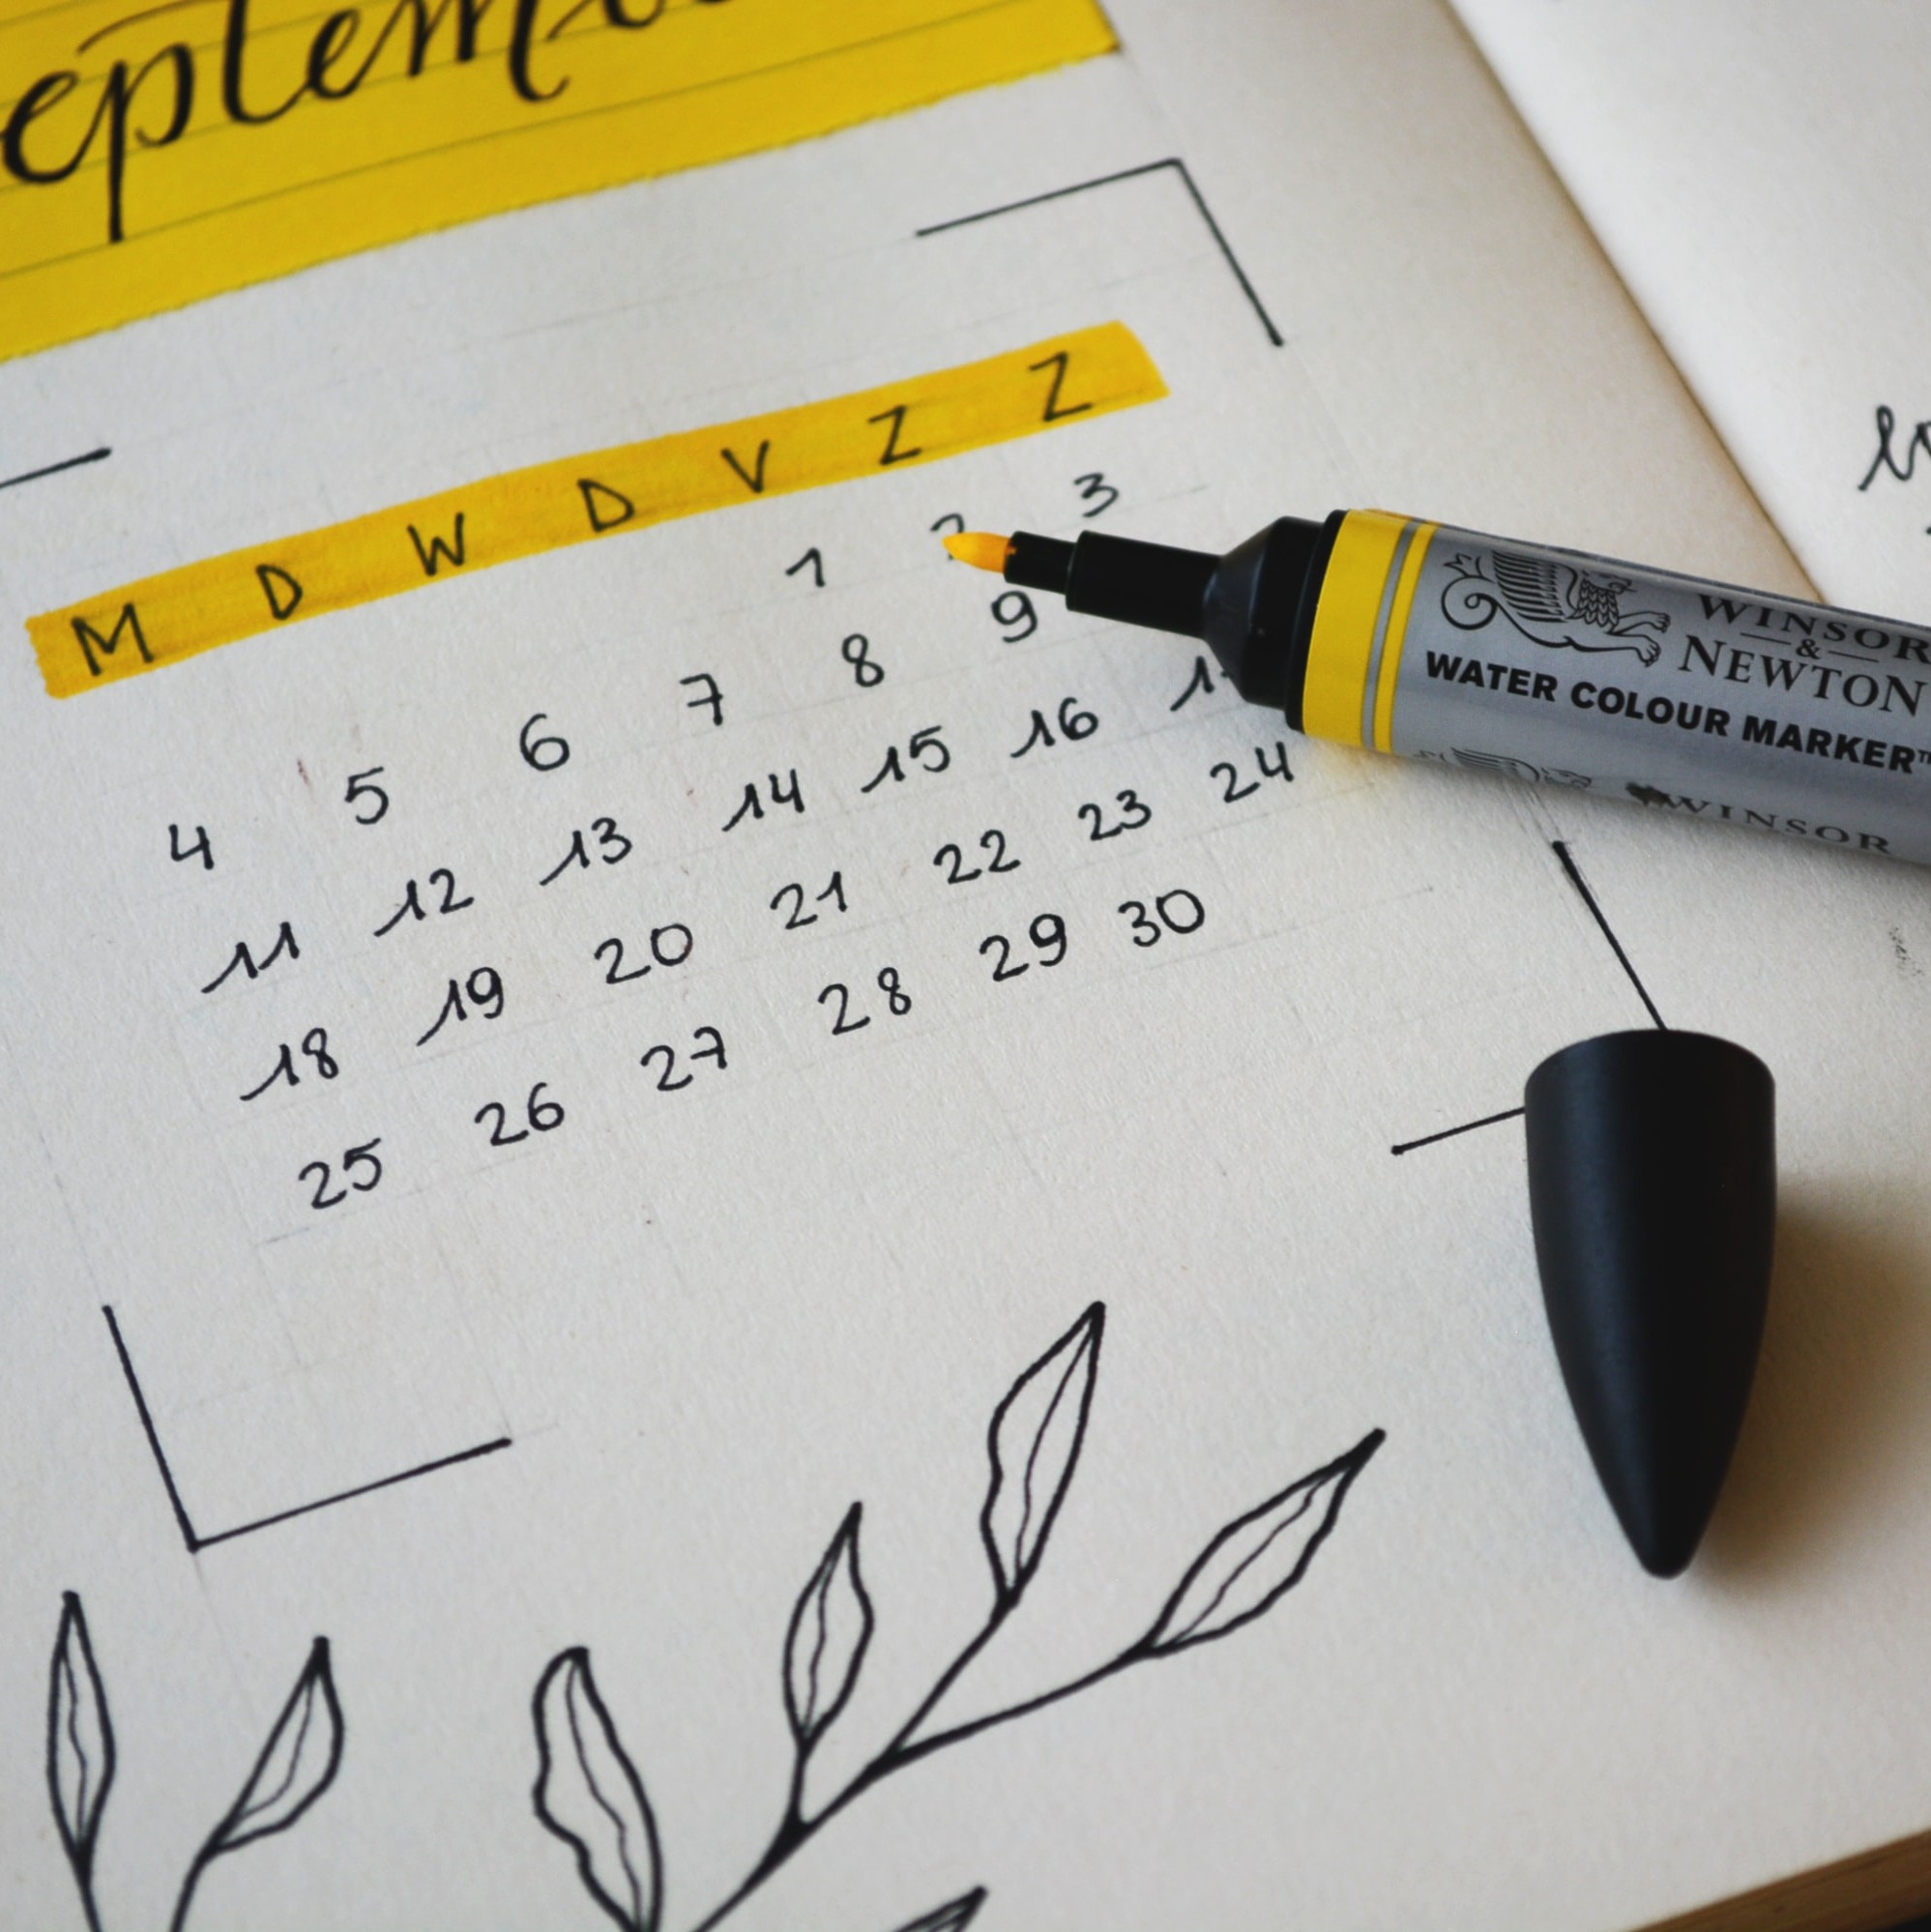 eptemb
M D W D V Z Z
1 2 3
4 5 6 7 8 9
11 12 13 14 15 16
18 19 20 21 22 23 24
25 26 27 28 29 30
WINSOR
&
NEWTON
WATER COLOUR MARKER™
WINSOR